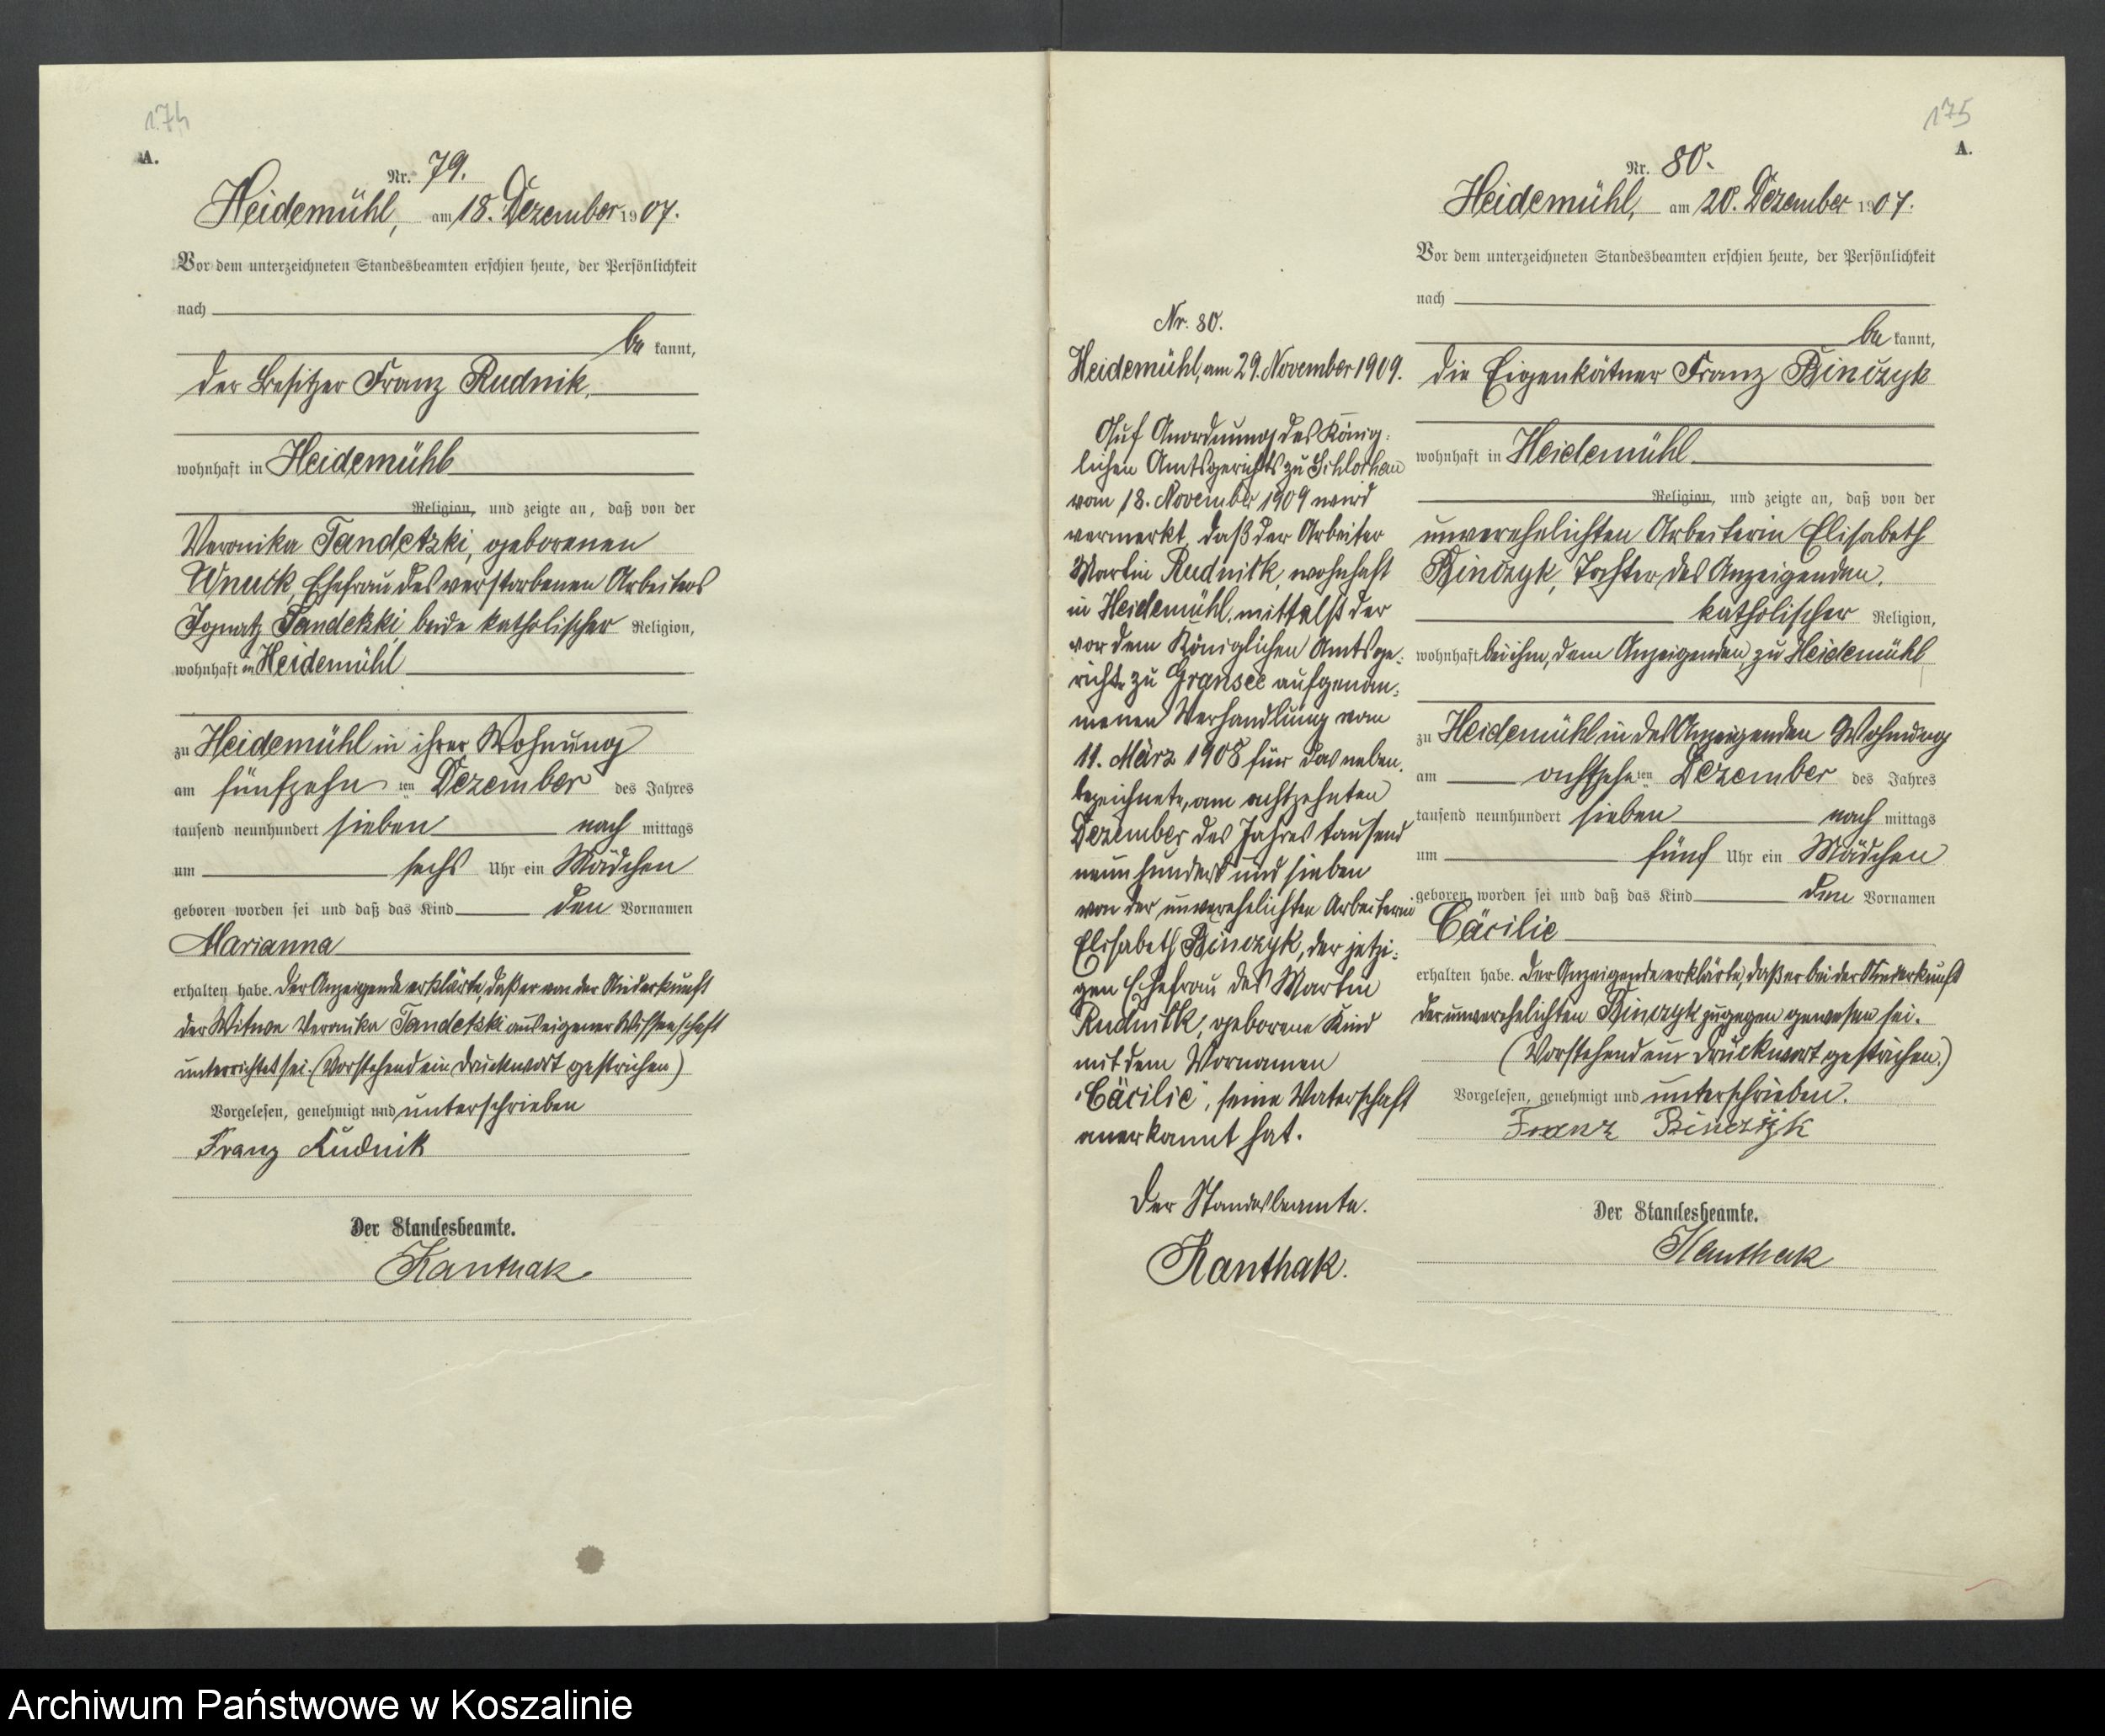 174
A.
Nr. 79.
Heidemühl, am 18. Dezember 1907.
Vor dem unterzeichneten Standesbeamten erschien heute, der Persönlichkeit
nach
be kannt,
der Besitzer Franz Rudnik,
wohnhaft in Heidemühl
Religion, und zeigte an, daß von der
Veronika Tandetzki, geborenen
Wnuck, Ehefrau des verstorbenen Arbeiters
Ignatz Tandetzki, beide katholischer Religion,
wohnhaft in Heidemühl
zu Heidemühl in ihrer Wohnung
am fünfzehn ten Dezember des Jahres
tausend neunhundert sieben nach mittags
um sechs Uhr ein Mädchen
geboren worden sei und daß das Kind den Vornamen
Marianna
erhalten habe. Der Anzeigende erklärte, daß er von der Niederkunft
der Witwe Veronika Tandetzki aus eigener Wissenschaft
unterrichtet sei. (Vorstehend ein Druckwort gestrichen)
Vorgelesen, genehmigt und unterschrieben
Franz Rudnik
Der Standesbeamte.
Kanthak
175
A.
Nr. 80.
Heidemühl, am 20. Dezember 1907.
Vor dem unterzeichneten Standesbeamten erschien heute, der Persönlichkeit
nach
be kannt,
die Eigenkätner Franz Binczyk
wohnhaft in Heidemühl
Religion, und zeigte an, daß von der
unverehelichten Arbeiterin Elisabeth
Binczyk, Tochter des Anzeigenden,
katholischer Religion,
wohnhaft bei ihm, dem Anzeigenden, zu Heidemühl
zu Heidemühl in des Anzeigenden Wohnung
am achtzehn ten Dezember des Jahres
tausend neunhundert sieben nach mittags
um fünf Uhr ein Mädchen
geboren worden sei und daß das Kind den Vornamen
Cäcilie
erhalten habe. Der Anzeigende erklärte, daß er bei der Niederkunft
der unverehelichten Binczyk zugegen gewesen sei.
(Vorstehend ein Druckwort gestrichen.)
Vorgelesen, genehmigt und unterschrieben.
Franz Binczijk
Der Standesbeamte.
Kanthak
Nr. 80.
Heidemühl, am 29. November 1909.
Auf Anordnung des König-
lichen Amtsgerichts zu Schlochau
vom 18. November 1909 wird
vermerkt, daß der Arbeiter
Martin Rudnick, wohnhaft
in Heidemühl, mittelst der
vor dem Königlichen Amtsge-
richte zu Gransee aufgenom-
menen Verhandlung vom
11. März 1908 für das neben-
bezeichnete, am achtzehnten
Dezember des Jahres tausend
neunhundert und sieben
von der unverehelichten Arbeiterin
Elisabeth Binczyk, der jetzi-
gen Ehefrau des Martin
Rudnick, geborene Kind
mit dem Vornamen
"Cäcilie", seine Vaterschaft
anerkannt hat.
Der Standesbeamte.
Kanthak.
Archiwum Państwowe w Koszalinie